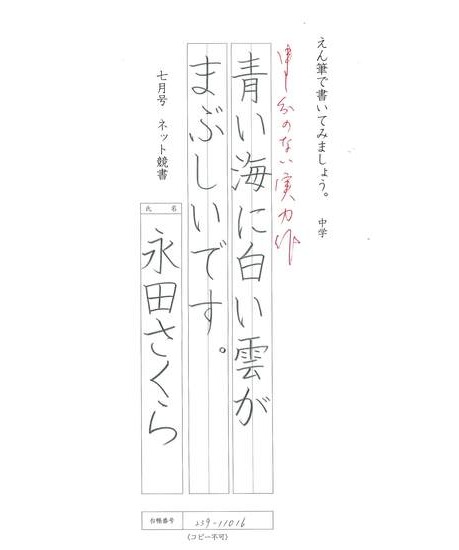 えん筆で書いてみましょう。 中学
申し分のない実力作
青い海に白い雲が
まぶしいです。
七月号 ネット競書
氏名
永田さくら
台帳番号 259-11016
(コピー不可)